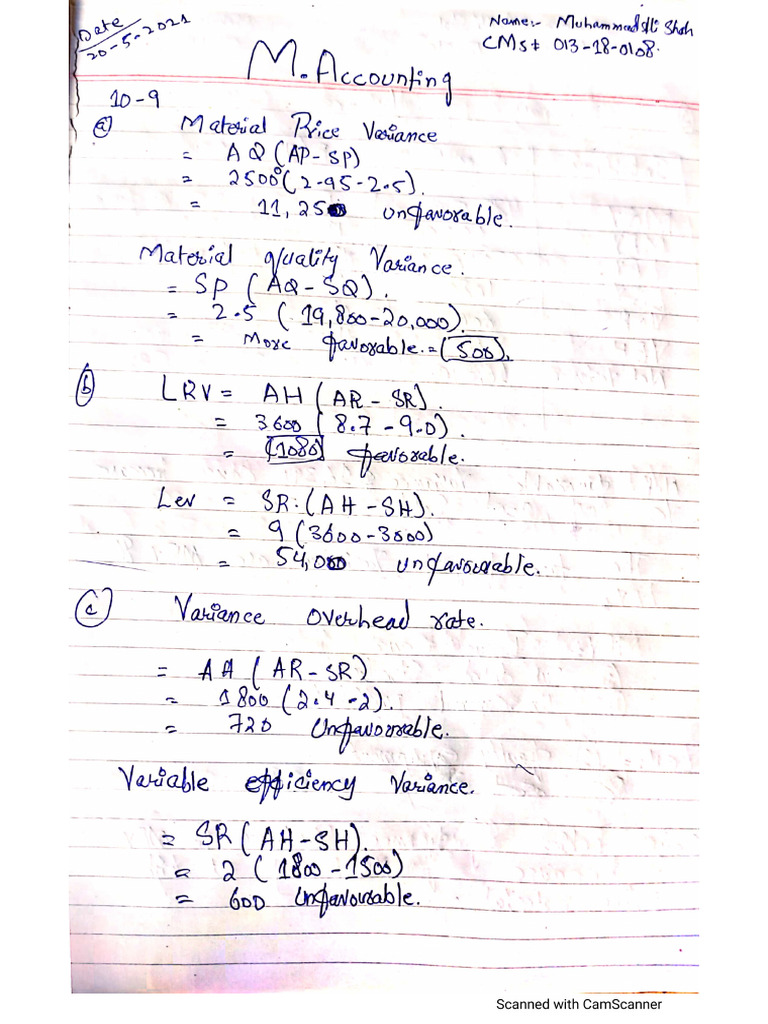 Date
20-5-2021
Name:- Muhammad Ali Shah
CMS# 013-18-0108.
M. Accounting
10-9
a) Material Price Variance
= AQ (AP-SP)
= 25000 (2-95-2.5).
= 11,250 unfavorable.
Material quality Variance.
= SP (AQ-SQ).
= 2.5 ( 19,800-20,000).
= More favorable. = (500).
b) LRV = AH (AR - SR).
= 3600 ( 8.7 - 9.0).
= (1080) favorable.
Lev = SR. (AH - SH).
= 9 (3600-3000)
= 54,000 unfavourable.
c) Variance overhead rate.
= AA ( AR-SR)
= 1800 (2.4 -2).
= 720 Unfavourable.
Variable efficiency Variance.
= SR (AH-SH).
= 2 ( 1800 -1500)
= 600 Unfavourable.
Scanned with CamScanner